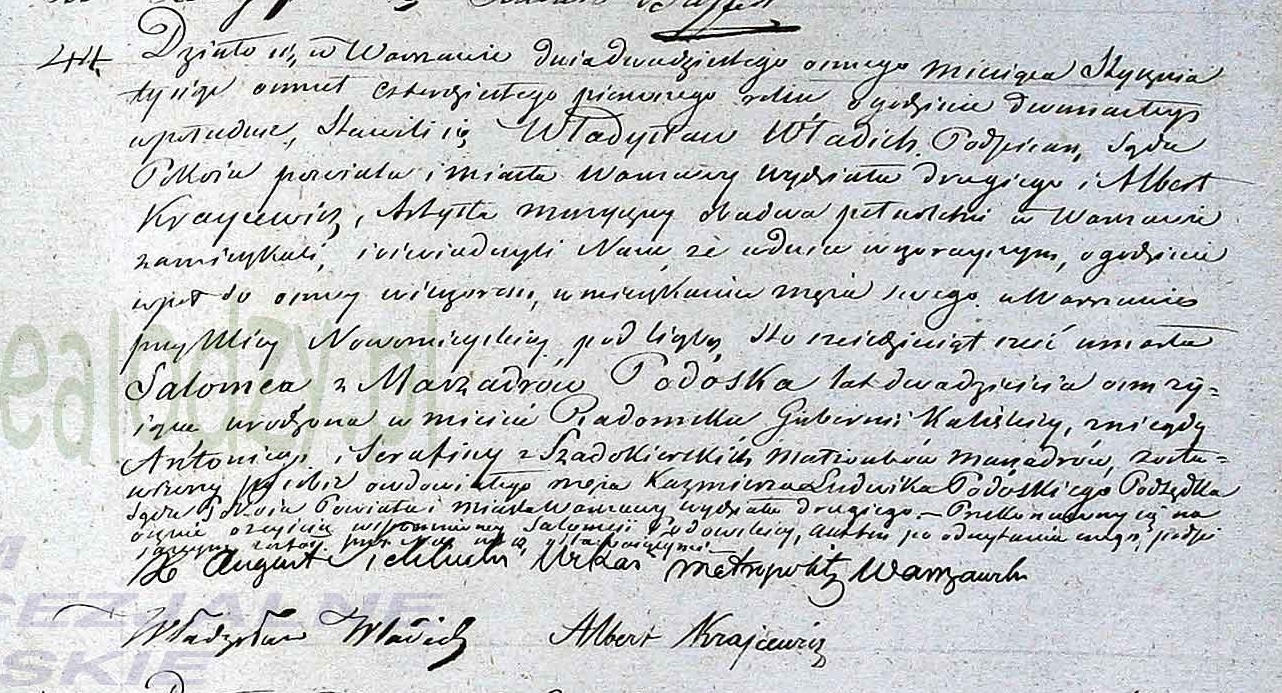 44. Działo się w Warszawie dnia dwudziestego osmego miesiąca Stycznia
tysiąc osmset czterdziestego pierwszego roku o godzinie dwunastey
w południe, Stawili się Władysław Władich, Podpisarz Sądu
Pokoiu powiatu i miasta Warszawy wydziału drugiego i Albert
Kraycewicz, Artysta muzyczny obadwa pełnoletni w Warszawie
zamieszkali, i oświadczyli Nam, że w dniu wczorayszym, o godzinie
wpół do osmey wieczorem, w mieszkaniu męża swego w Warszawie
przy Ulicy Nowomieyskiey pod liczbą sto sześćdziesiąt sześć umarła
Salomea z Mazadrów Podoska lat dwadzieścia osm ży-
iąca urodzona w mieście Radomsku Gubernii Kaliskiey, z niegdy
Antoniego i Serafiny z Szadokierskich małżonków Mazadrów, zosta-
wiwszy po sobie owdowiałego męża Kazimierza Ludwika Podoskiego Podsędka
Sądu Pokoiu Powiatu i miasta Warszawy wydziału drugiego. — Przekonawszy się na
ocznie o zeyściu wspomnioney Salomei Podowskiey, Akt ten po odczytaniu onego, podpi
X August Wikar metropolity Warszawski
Władysław Władich Albert Krajcewicz
EALODZY.PL